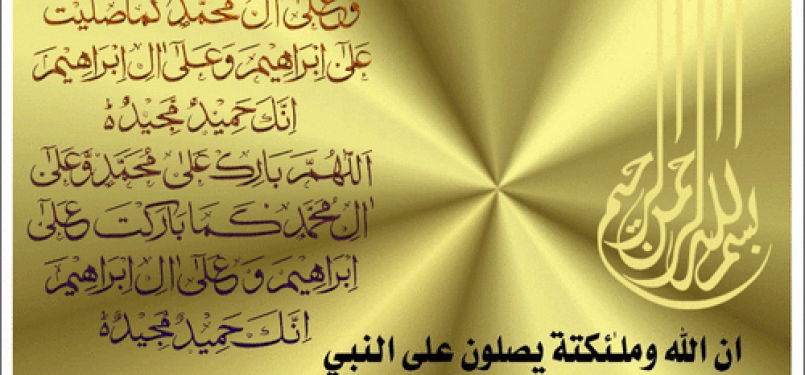 وَعَلٰٓى اٰلِ مُحَمَّدٍ كَمَا صَلَّيْتَ
عَلٰٓى اِبْرَاهِيْمَ وَعَلٰٓى اٰلِ اِبْرَاهِيْمَ
اِنَّكَ حَمِيْدٌ مَّجِيْدٌ ہ
اَللّٰهُمَّ بَارِكْ عَلٰى مُحَمَّدٍ وَّعَلٰٓى
اٰلِ مُحَمَّدٍ كَمَا بَارَكْتَ عَلٰٓى
اِبْرَاهِيْمَ وَعَلٰٓى اٰلِ اِبْرَاهِيْمَ
اِنَّكَ حَمِيْدٌ مَّجِيْدٌ ہ
بسم الله الرحمن الرحيم
ان الله وملئكتة يصلون على النبي